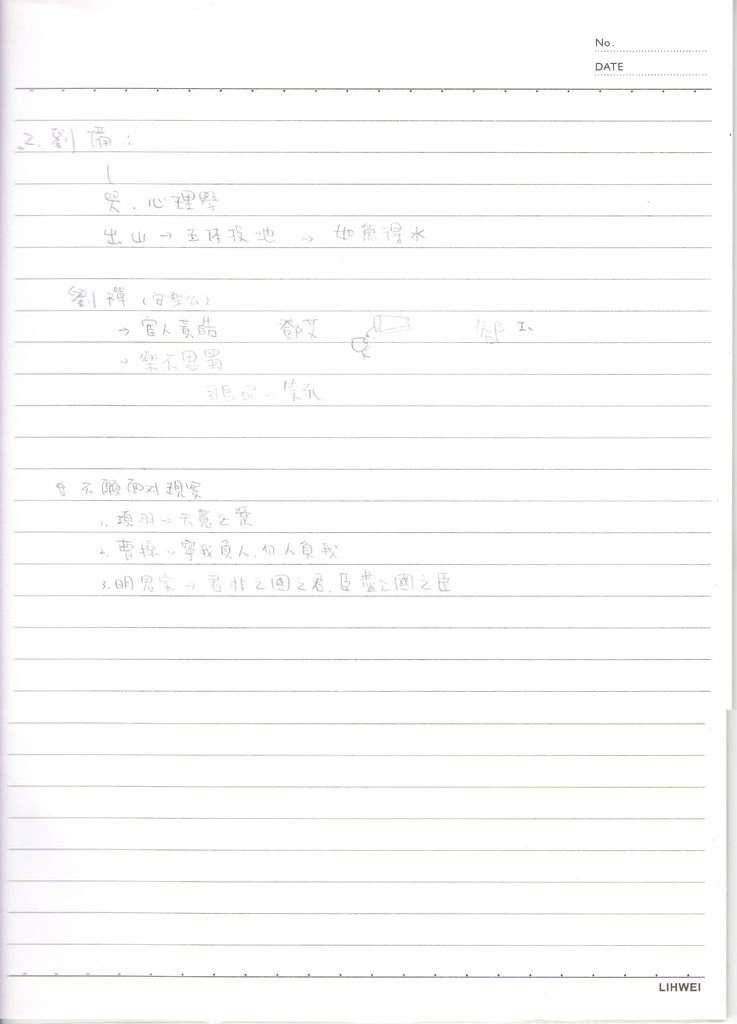 No.
DATE
2. 劉備：
哭. 心理學
出山 → 五体投地 → 如魚得水
劉禪 (安樂公)
→ 宦人黃皓 鄧艾
→ 樂不思蜀
不願面对現實
1. 項羽 → 天意之
2. 曹操 → 寧我負人, 勿人負我
3. 明思宗 → 君非亡國之君, 臣盡亡國之臣
LIHWEI